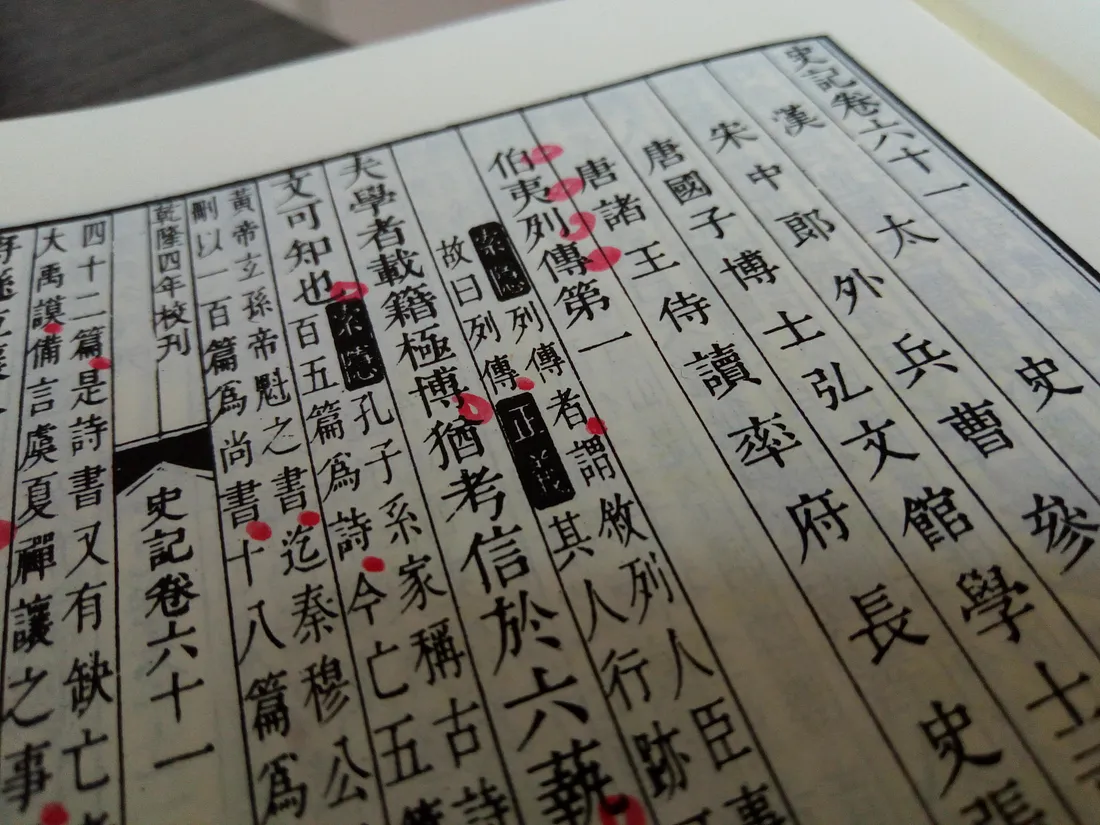 史記卷六十一
漢太史
宋中郎外兵曹參
唐國子博士弘文館學士
唐諸王侍讀率府長史張
伯夷列傳第一
索隱列傳者謂敘列人臣事
故曰列傳正義其人行跡
夫學者載籍極博猶考信於六藝
文可知也索隱孔子系家稱古詩
百五篇爲詩今亡五篇
黃帝玄孫帝魁之書迄秦穆公
刪以一百篇爲尚書十八篇爲
乾隆四年校刊
史記卷六十一
四十二篇是詩書又有缺亡
大禹謨備言虞夏禪讓之事